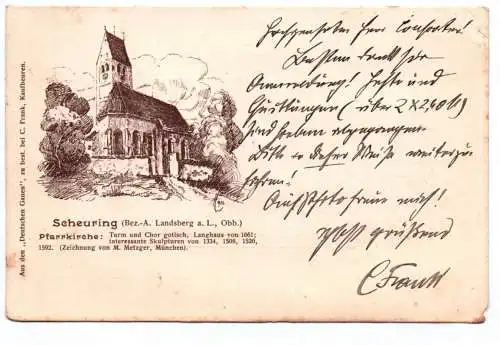 Aus den „Deutschen Gauen", zu bezi. bei C. Frank, Kaufbeuren.
Scheuring (Bez.-A. Landsberg a. L., Obb.)
Pfarrkirche: Turm und Chor gotisch, Langhaus von 1661;
interessante Skulpturen von 1334, 1508, 1526,
1592. (Zeichnung von M. Metzger, München).
Herr
Besten Dank für
Anmeldung! Hefte und
Quittungen (über 2 x 2,40 M)
sind soeben abgegangen.
Bitte in dieser Weise weiterzu
fahren!
mich!
grüßend
C Frank